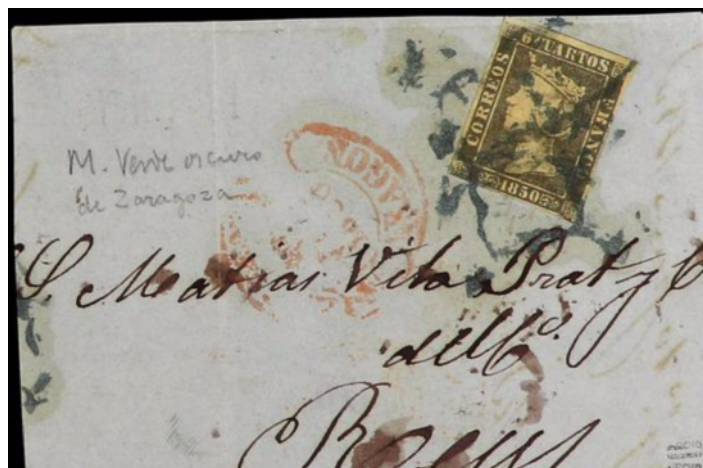 6 CUARTOS
CORREOS
FRANCO
1850
M. Verde oscuro
de Zaragoza
ARAGON
S. Matias Vila Prat y C
del Co.
Reus